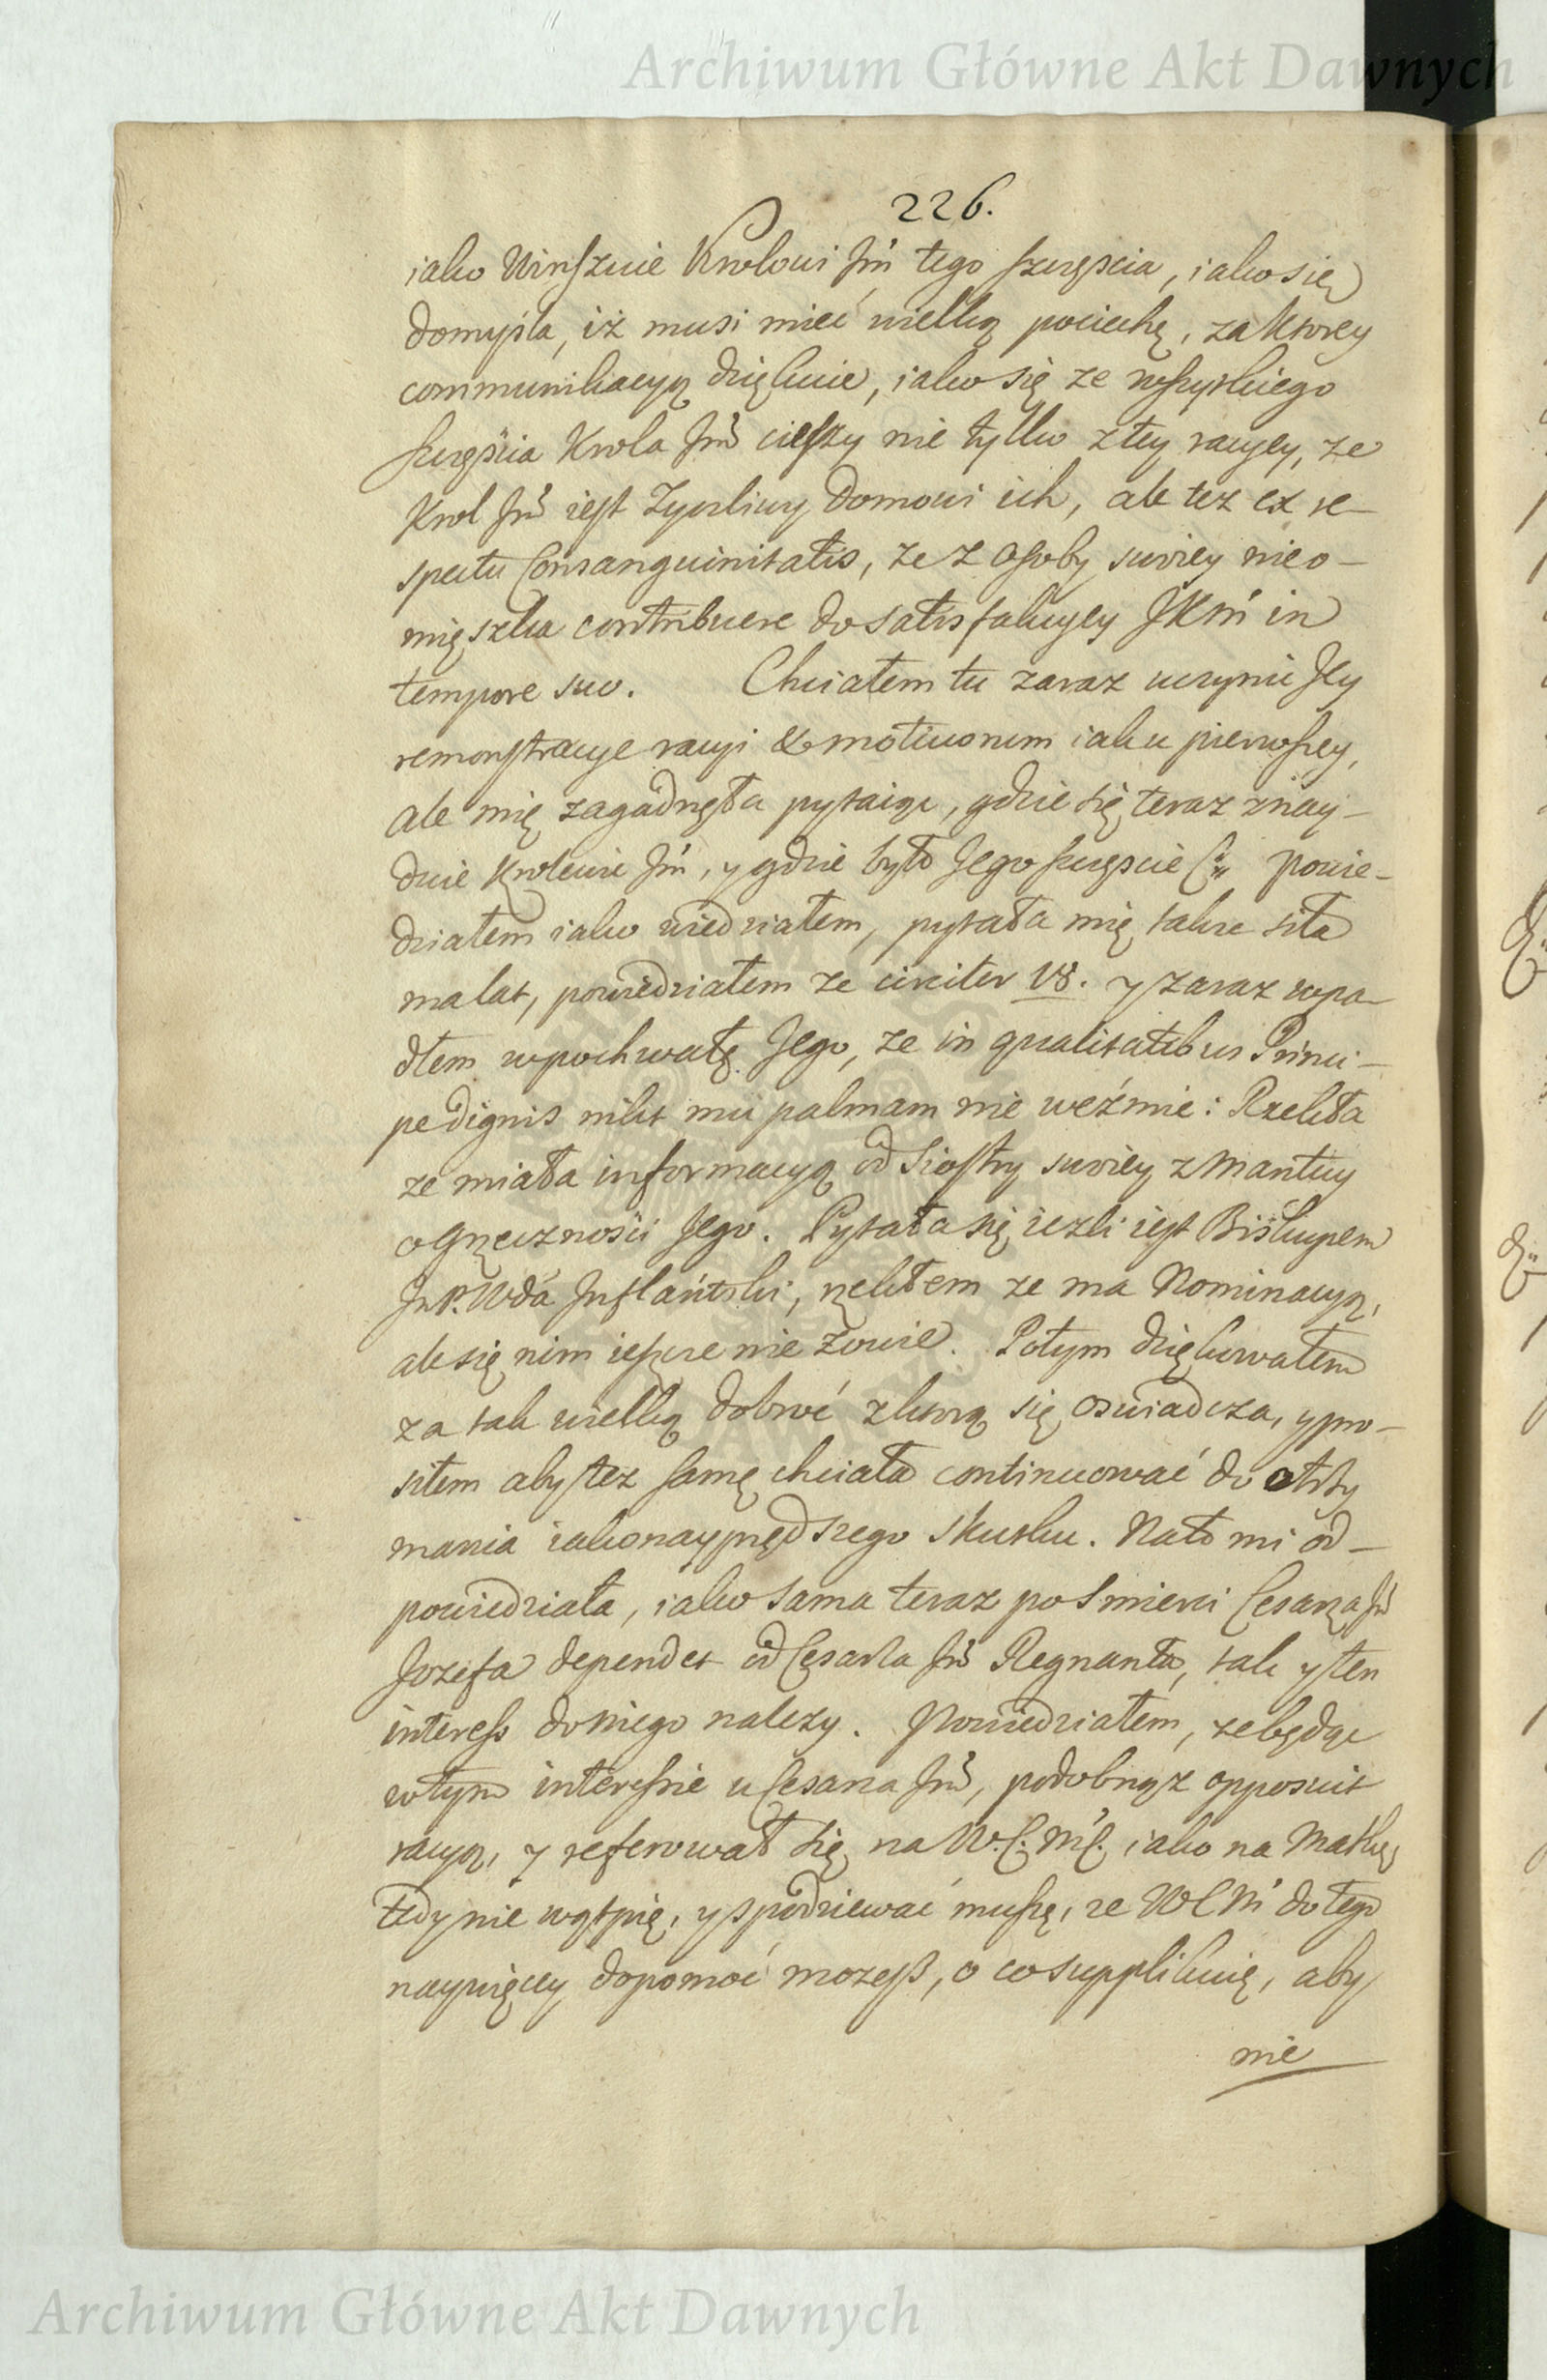 Archiwum Główne Akt Dawnych
226.
iako Winszuie Krolowi Jm̃ tego szczęscia, iako się
domyśla, iż musi mieć wielką pociechę, za ktorey
communikacyą dziękuie, iako się ze wszystkiego
szczęścia Krola Jm̃ cieszy nie tylko z tey racyey, ze
Krol Jm̃ iest Zyczliwy Domowi ich, ale tez ex re-
spectu Consanguinitatis, ze z osoby swoiey nieo-
mięszka contribuere do satisfakcyey JKm̃ in
tempore suo. Chciałem tu zaraz uczynic Jey
remonstracye racyi & motivorum iako pierwszey,
ale mię zagadnęła pytaiąc, gdzie się teraz znay-
duie Krolewic Jm̃, y gdzie było Jego szczęscie powie-
działem iako wiedziałem, pytała mię takze siła
ma lat, powiedziałem ze circiter 18. y zaraz wpa-
dłem w pochwałę Jego, ze in qualitatibus Princi-
pe dignis nikt mu palmam nie weźmie: Rzekła
ze miała informacyą od Siostry swoiey z Mantuy
o Grzecznosci Jego. Pytała się iezli iest Biskupem
Jm̃ P. Wdá Inflańtski, rzekłem ze ma Nominacyą,
ale się nim ieszcze nie zowie. Potym dziękowałem
za tak wielką dobroć z ktorą się oswiadcza, y pro-
siłem aby tez samę chciała continuować do otrzy
mania iako nayprędszego skutku. Na to mi od-
powiedziała, iako sama teraz po smierci Cesarza Jm̃
Jozefa dependet od Cesarza Jm̃ Regnanta, tak y ten
interess do niego nalezy. Powiedziałem, ze będąc
w tym interessie u Cesarza Jm̃, podobnąz opposuit
racyą, y referował się na W.C.M.C. iako na Matkę,
tedy nie wątpię, y spodziewać muszę, ze WCM̃ do tego
naywięcey dopomoć mozesz, o co supplikuię, aby
nie
Archiwum Główne Akt Dawnych